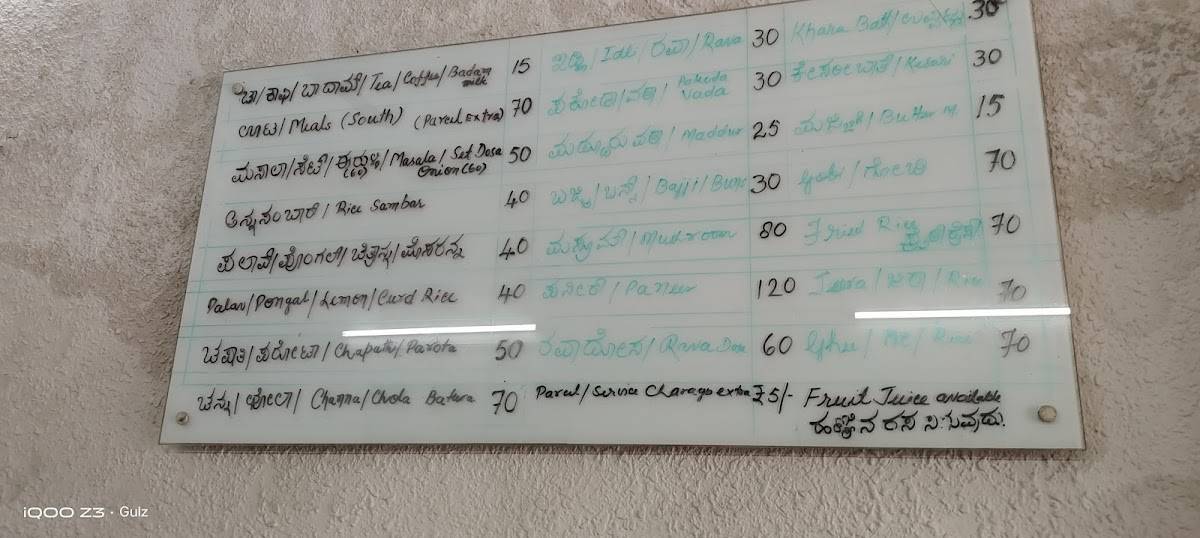 ಚಾ/ಕಾಫಿ/ಬಾದಾಮ್/Tea/Coffee/Badam milk 15
ಊಟ/Meals (South) (Parcel Extra) 70
ಮಸಾಲಾ/ಸೆಟ್/ಈರುಳ್ಳಿ/Masala/Set Dosa Onion(60) 50
ಅನ್ನಸಂಬಾರ್/Rice Sambar 40
ಪಲಾವ್/ಪೊಂಗಲ್/ಚಿತ್ರಾನ್ನ/ಮೊಸರನ್ನ 40
Palav/Pongal/Lemon/Curd Rice 40
ಚಪಾತಿ/ಪರೋಟಾ/Chapathi/Parota 50
ಚನ್ನಾ/ಛೋಲಾ/Channa/Chola Batura 70
ಇಡ್ಲಿ/Idli/ರವಾ/Rava 30
ಪಕೋಡಾ/ವಡಾ/Pakoda Vada 30
ಮದ್ದೂರು ವಡಾ/Maddur 25
ಬಜ್ಜಿ/ಬನ್ಸ್/Bajji/Buns 30
ಮಶ್ರೂಮ್/Mushroom 80
ಪನೀರ್/Paneer 120
ರವಾದೋಸ/Rava Dosa 60
Parcel/Service Charage extra ₹5/-
Khara Bath/ 30
ಕೇಸರಿಬಾತ್/Kesari 30
ಮಜ್ಜಿಗೆ/Butter M. 15
Gobi/ಗೋಬಿ 70
Fried Rice 70
Jeera/ಜೀರಾ/Rice 70
Ghee/ Rice 70
Fruit Juice available
ಹಣ್ಣಿನ ರಸ ಸಿಗುವುದು.
iQOO Z3 · Gulz